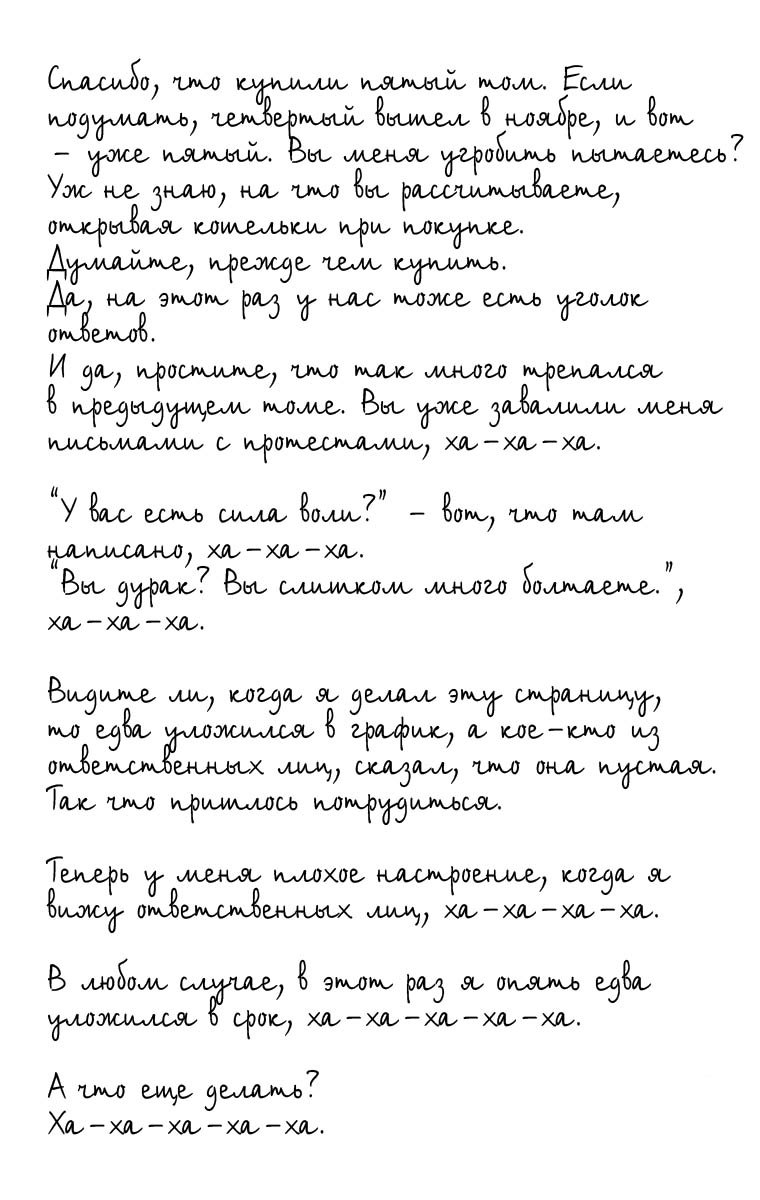 Спасибо, что купили пятый том. Если
подумать, четвертый вышел в ноябре, и вот
– уже пятый. Вы меня угробить пытаетесь?
Уж не знаю, на что вы рассчитываете,
открывая кошельки при покупке.
Думайте, прежде чем купить.
Да, на этот раз у нас тоже есть уголок
ответов.
И да, простите, что так много трепался
в предыдущем томе. Вы уже завалили меня
письмами с протестами, ха-ха-ха.
"У вас есть сила воли?" – вот, что там
написано, ха-ха-ха.
"Вы дурак? Вы слишком много болтаете.",
ха-ха-ха.
Видите ли, когда я делал эту страницу,
то едва уложился в график, а кое-кто из
ответственных лиц, сказал, что она пустая.
Так что пришлось потрудиться.
Теперь у меня плохое настроение, когда я
вижу ответственных лиц, ха-ха-ха-ха.
В любом случае, в этот раз я опять едва
уложился в срок, ха-ха-ха-ха-ха.
А что еще делать?
Ха-ха-ха-ха-ха.